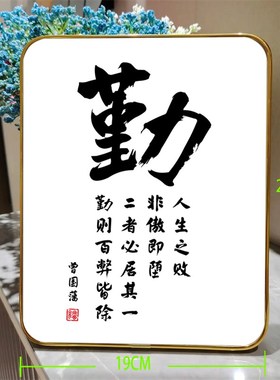 勤
人生之败
非傲即堕
二者必居其一
勤则百弊皆除
曾国藩
19CM